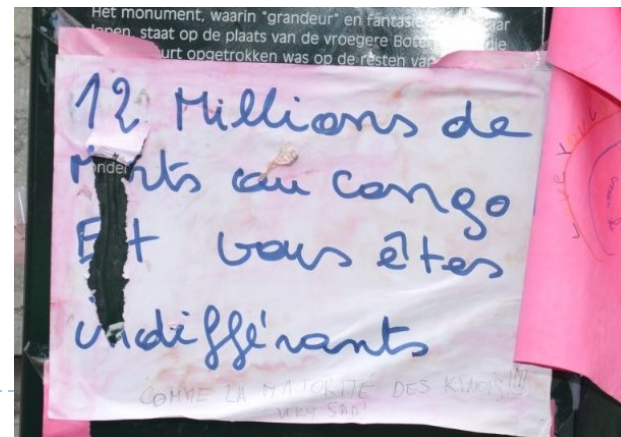 Het monument, waarin "grandeur" en fantasie
lopen, staat op de plaats van de vroegere
opgetrokken was op de resten van
12 Millions de
Morts au Congo
Et vous êtes
indifférants
COMME LA MAJORITÉ DES KINOIS!!!!
VERY SAD!